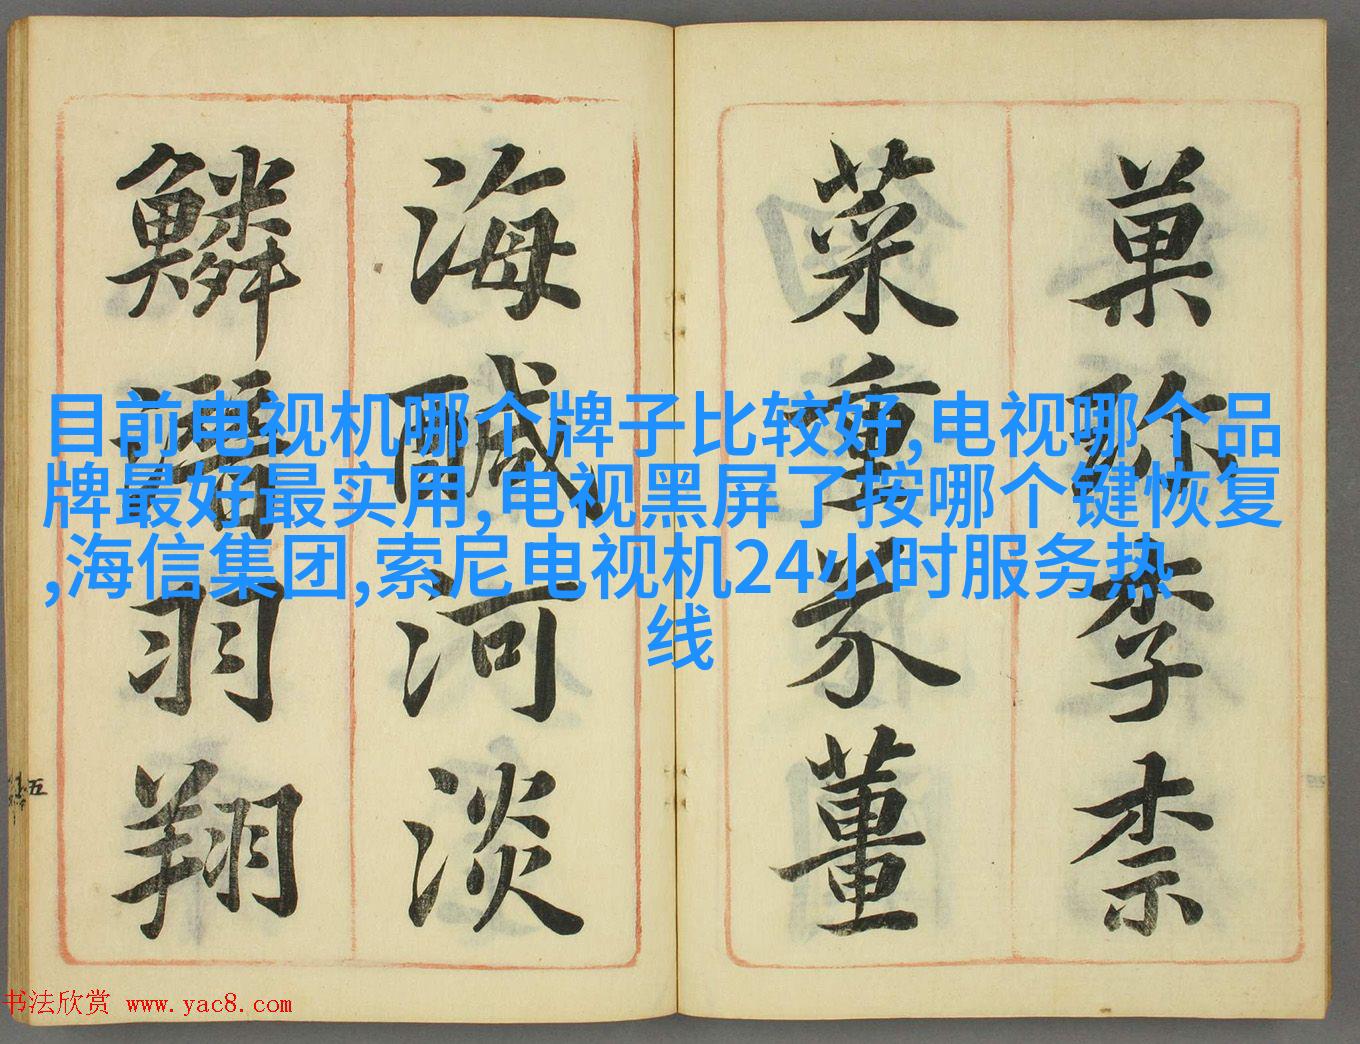 菓珎李柰
菜重芥薑
海鹹河淡
鱗潛羽翔
五
目前电视机哪个牌子比较好,电视哪个品
牌最好最实用,电视黑屏了按哪个键恢复
,海信集团,索尼电视机24小时服务热
线
书法欣赏 www.yac8.com